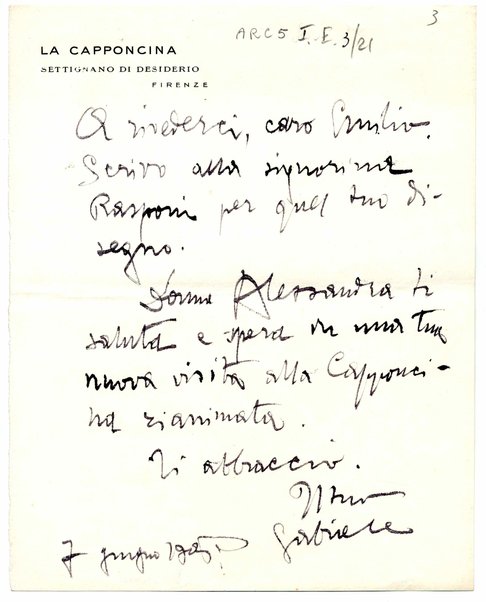 3
ARC5 I.E. 3/21
LA CAPPONCINA
SETTIGNANO DI DESIDERIO
FIRENZE
A rivederci, caro Emilio.
Scrivo alla signorina
Rasponi per quel tuo di-
segno.
Donna Alessandra ti
saluta e spera in una tua
nuova visita alla Capponci-
na rianimata.
Ti abbraccio.
Il tuo
Gabriele
7 giugno 1905